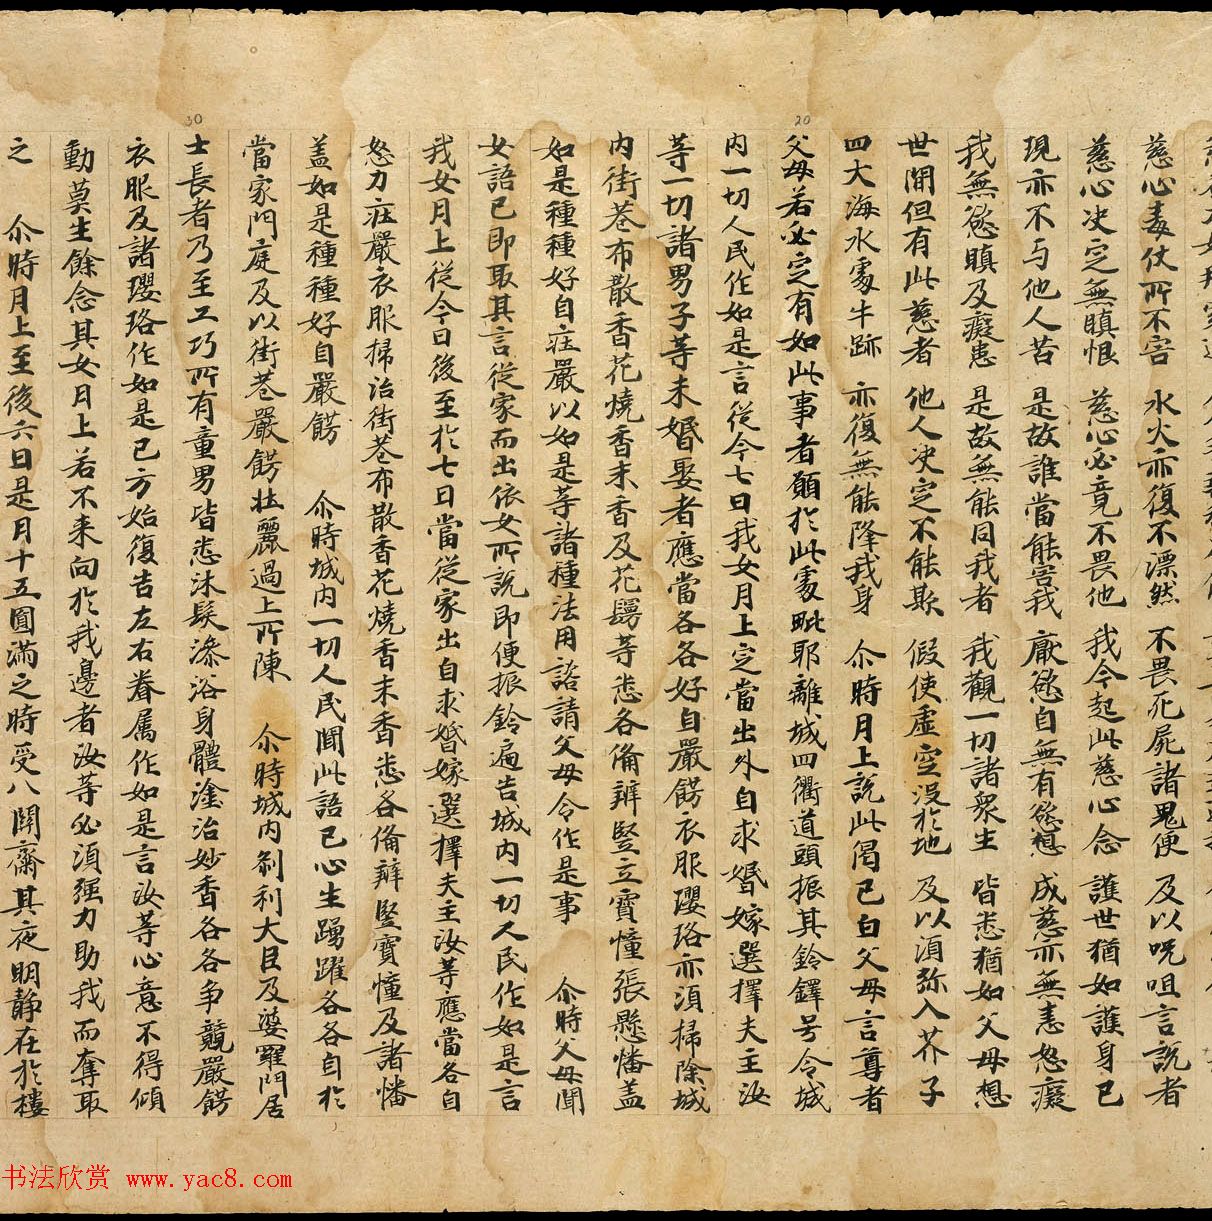 慈心毒仗所不害 水火亦復不漂然 不畏死屍諸鬼便 及以呪咀言說者
慈心决定無瞋恨 慈心必竟不畏他 我今起此慈心念 護世猶如護身已
現亦不与他人苦 是故誰當能害我 厭慾自無有慾想 成慈亦無恚怒癡
我無慾瞋及癡恚 是故無能同我者 我觀一切諸衆生 皆悉猶如父母想
世間但有此慈者 他人决定不能欺 假使虛空没於地 及以湏弥入芥子
四大海水處牛跡 亦復無能降我身 尒時月上說此偈已白父母言尊者
父母若必定有如此事者願於此處毗耶離城四衢道頭振其鈴鐸号令城
内一切人民作如是言從今七日我女月上定當出外自求婚嫁選擇夫主汝
等一切諸男子等未婚娶者應當各各好自嚴餝衣服瓔珞亦湏掃除城
内街巷布散香花燒香末香及花鬘等悉各俻辦竪立寶幢張懸幡盖
如是種種好自庄嚴以如是等諸種法用諮請父母令作是事 尒時父母聞
女語已即取其言從家而出依女所說即便振鈴遍告城内一切人民作如是言
我女月上從今日後至於七日當從家出自求婚嫁選擇夫主汝等應當各自
努力庄嚴衣服掃治街巷布散香花燒香末香悉各俻辦竪寶幢及諸幡
盖如是種種好自嚴餝 尒時城内一切人民聞此語已心生踊躍各各自於
當家門庭及以街巷嚴餝壯麗過上所陳 尒時城内刹利大臣及婆羅門居
士長者乃至工巧所有童男皆悉沐髮澡浴身體塗治妙香各各争競嚴餝
衣服及諸瓔珞作如是已方始復告左右眷属作如是言汝等心意不得傾
動莫生餘念其女月上若不来向於我邊者汝等必湏强力助我而奪取
之 尒時月上至後六日是月十五圓滿之時受八關齋其夜明静在於樓
20
30
书法欣赏 www.yac8.com